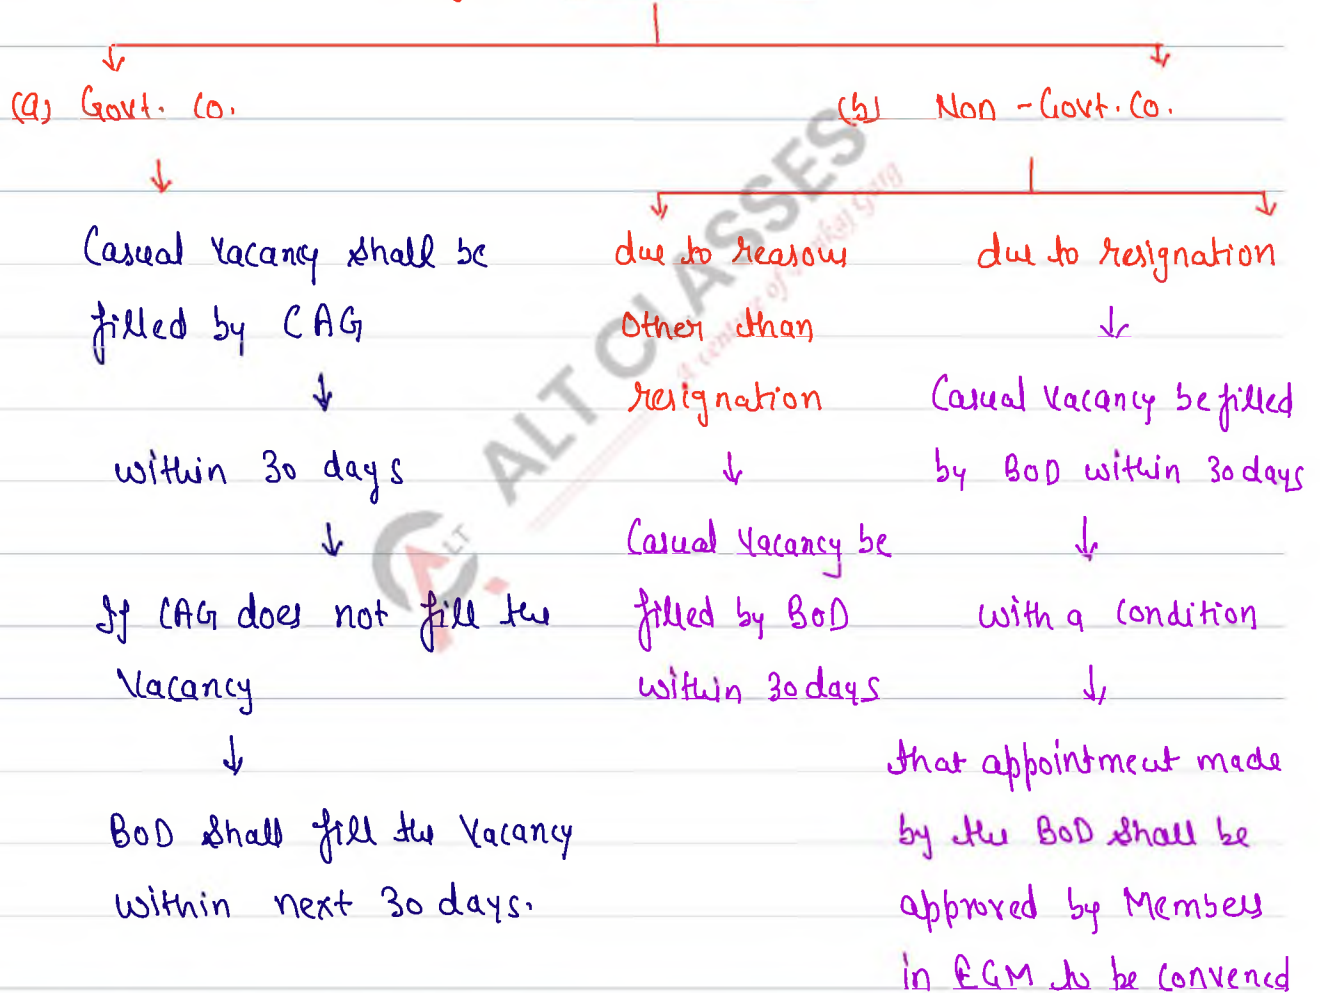 (a) Govt. Co.
(b) Non-Govt. Co.
Casual Vacancy shall be
filled by CAG
within 30 days
If CAG does not fill the
Vacancy
BoD shall fill the Vacancy
within next 30 days.
due to reasons
other than
resignation
Casual Vacancy be
filled by BoD
within 30 days
due to resignation
Casual Vacancy be filled
by BoD within 30 days
with a condition
that appointment made
by the BoD shall be
approved by Members
in EGM to be convened
ALT CLASSES
A venture of Pankaj Garg
ALT